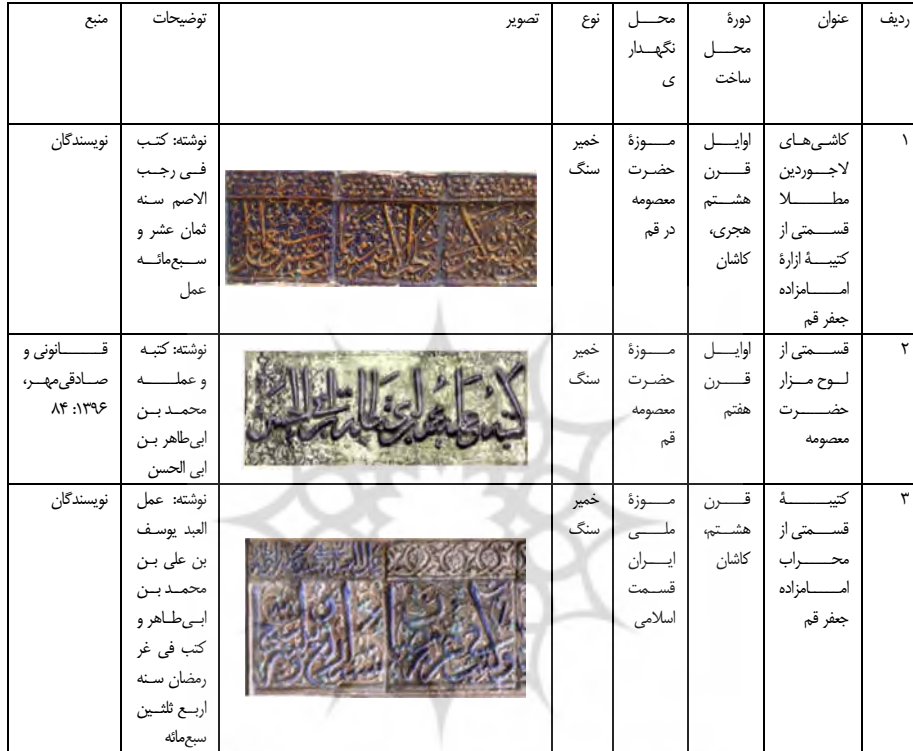 ردیف
عنوان
دورۀ
محل
ساخت
محل
نگهدار
ی
نوع
تصویر
توضیحات
منبع
۱
کاشی‌های
لاجوردین
مطلا
قسمتی از
کتیبۀ ازارۀ
امامزاده
جعفر قم
اوایل
قرن
هشتم
هجری،
کاشان
موزۀ
حضرت
معصومه
در قم
خمیر
سنگ
نوشته: کتب
فی رجب
الاصم سنه
ثمان عشر و
سبع‌مائه
عمل
نویسندگان
۲
قسمتی از
لوح مزار
حضرت
معصومه
اوایل
قرن
هفتم
موزۀ
حضرت
معصومه
قم
خمیر
سنگ
نوشته: کتبه
و عمله
محمد بن
ابی‌طاهر بن
ابی الحسن
قانونی و
صادقی‌مهر،
۱۳۹۶: ۸۴
۳
کتیبۀ
قسمتی از
محراب
امامزاده
جعفر قم
قرن
هشتم،
کاشان
موزۀ
ملی
ایران
قسمت
اسلامی
خمیر
سنگ
نوشته: عمل
العبد یوسف
بن علی بن
محمد بن
ابی‌طاهر و
کتب فی غر
رمضان سنه
اربع ثلثین
سبع‌مائه
نویسندگان